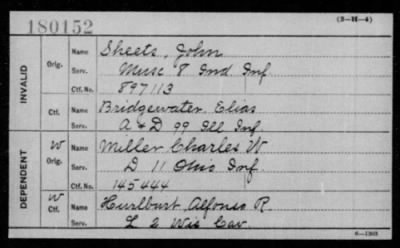 180152 (3-H-4)
INVALID
Orig. Name Sheets, John
Serv. Musc 8 Ind Inf.
Ctf. No. 897113
Ctf. Name Bridgewater, Elias
Serv. A & D 99 Ill Inf.
DEPENDENT
W Orig. Name Miller Charles W
Serv. D 11 Ohio Inf.
Ctf. No. 145444
W Ctf. Name Hurlburt, Alfonso R.
Serv. L 2 Wis Cav.